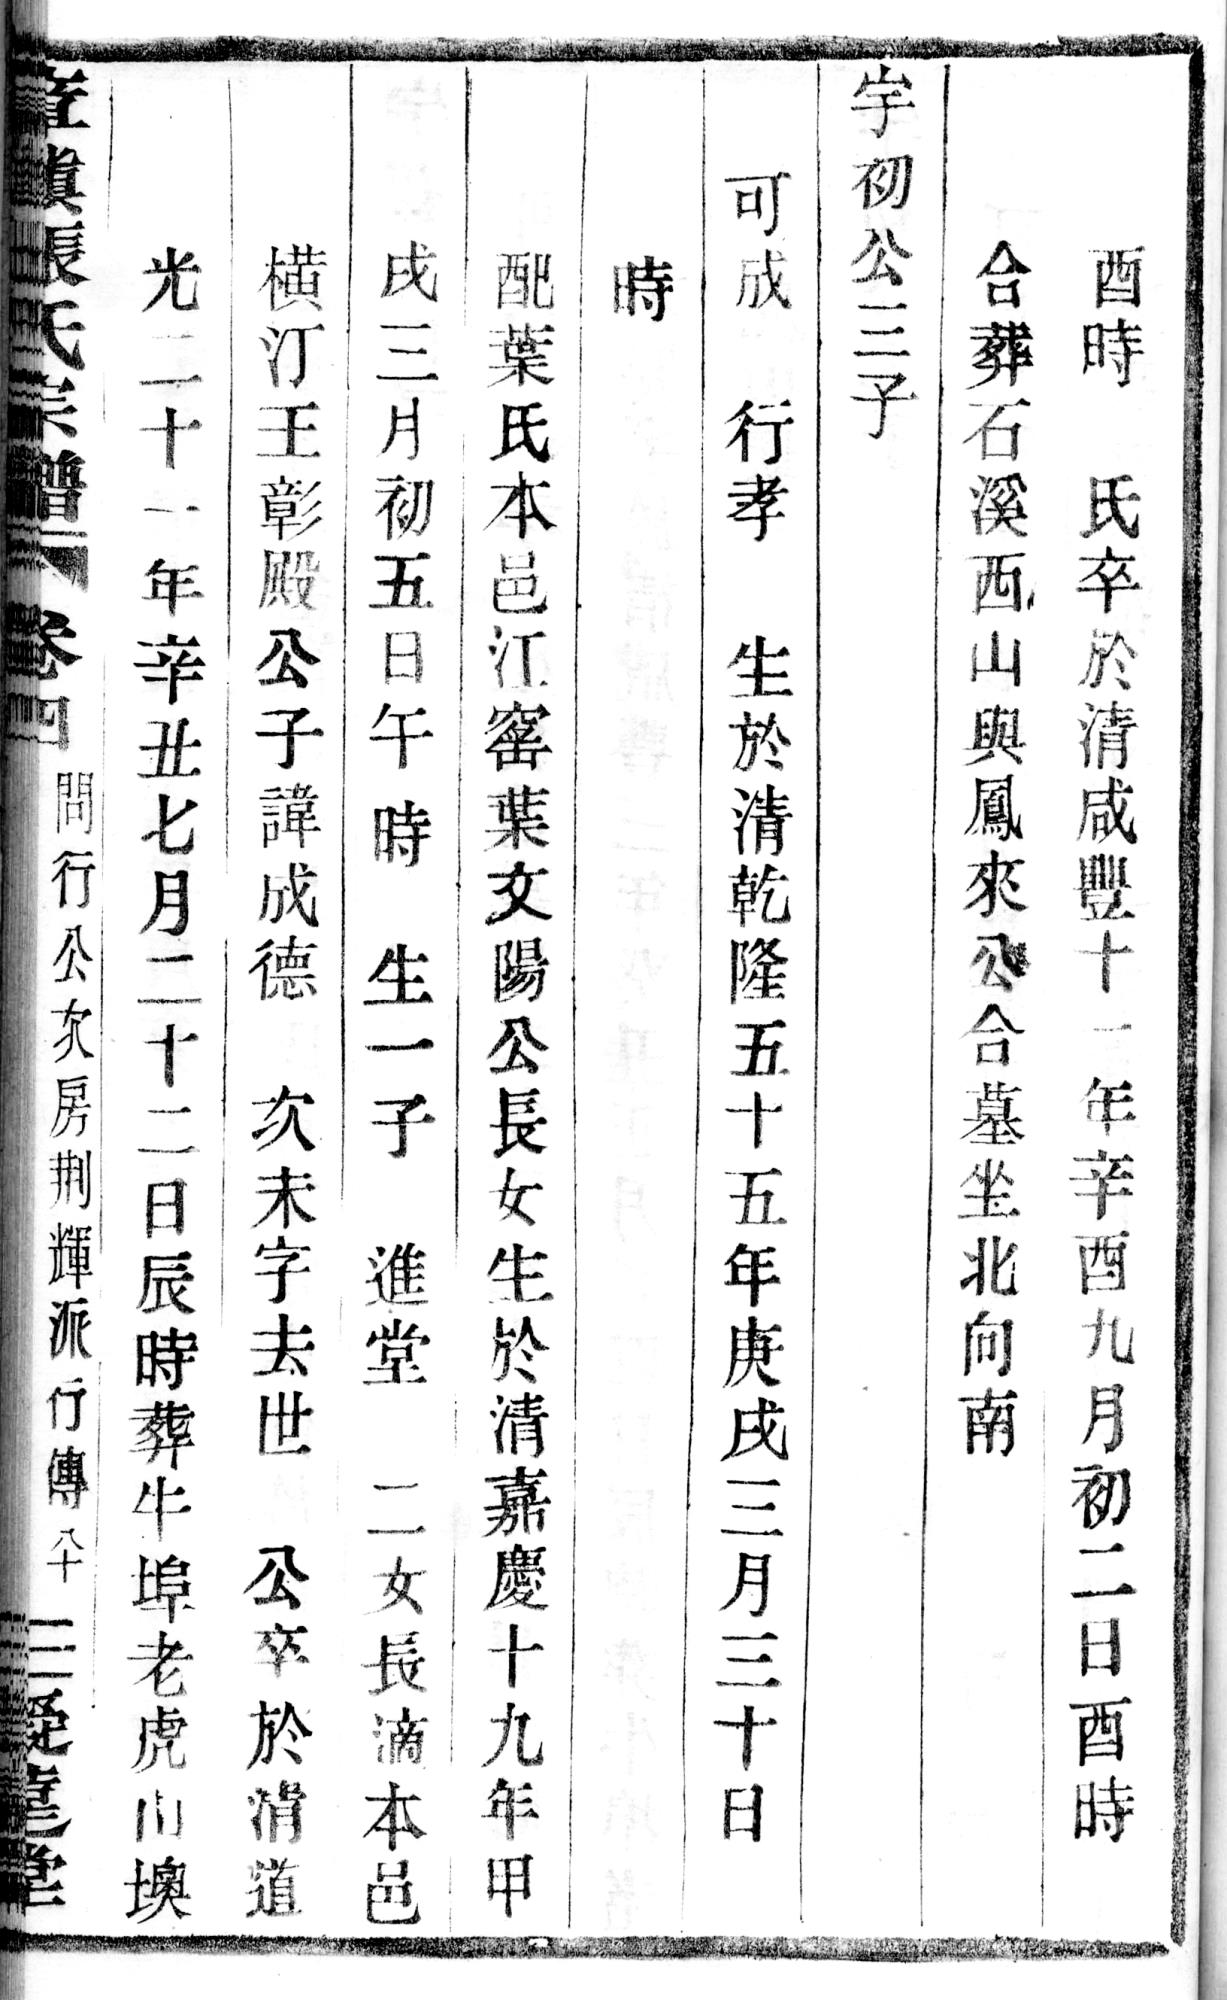 酉時　氏卒於清咸豐十一年辛酉九月初二日酉時
合葬石溪西山與鳳來公合墓坐北向南
宇初公三子
可成　行孝　生於清乾隆五十五年庚戌三月三十日
時
配葉氏本邑江窰葉文陽公長女生於清嘉慶十九年甲
戌三月初五日午時　生一子　進堂　二女長滴本邑
橫汀王彰殿公子諱成德　次未字去世　公卒於清道
光二十一年辛丑七月二十二日辰時葬牛埠老虎山墺
張氏宗譜　卷四　問行公次房荆輝派行傳　八十　三　堂